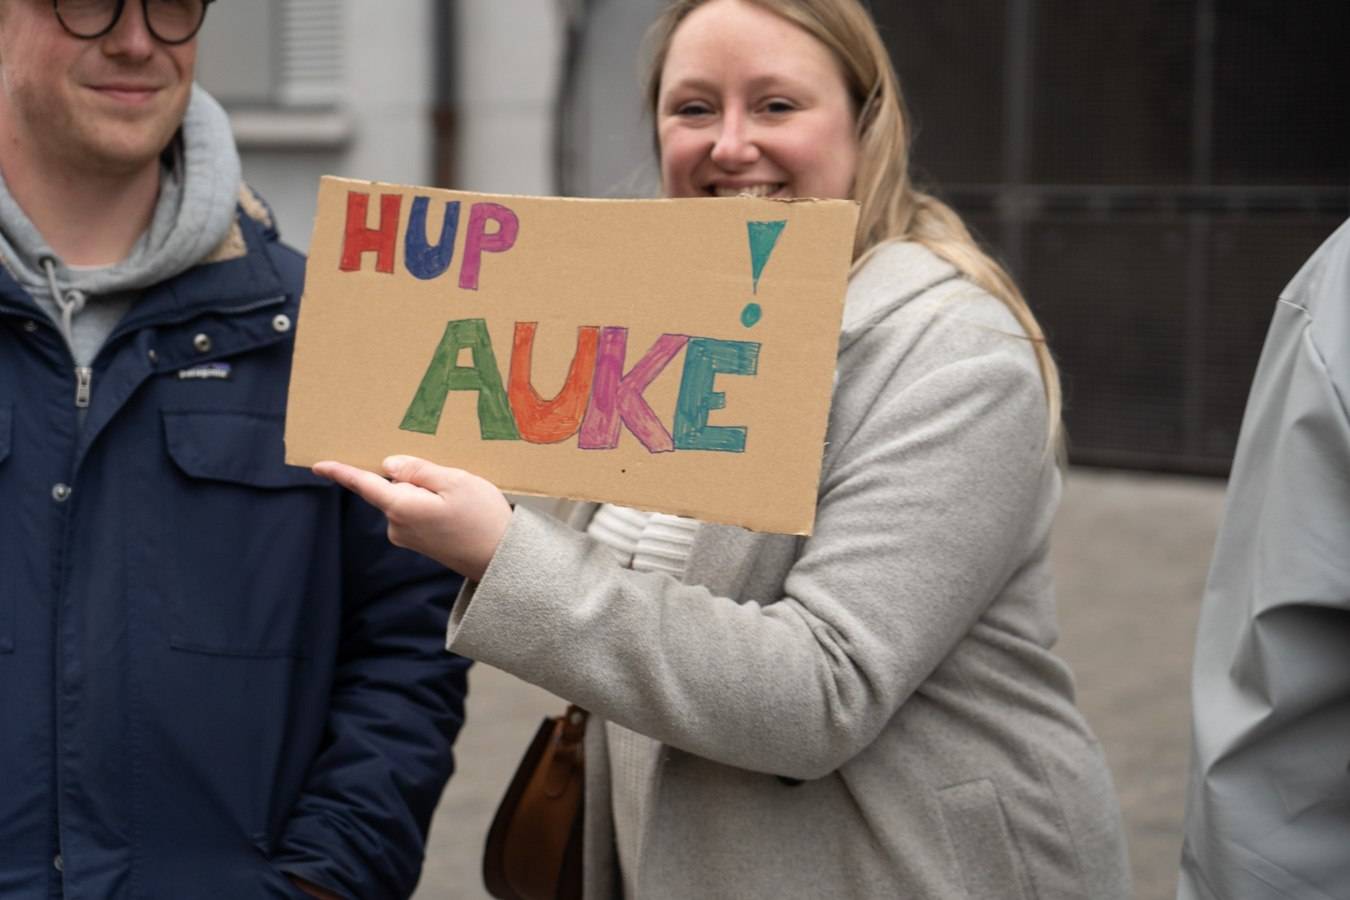 HUP !
AUKE
patagonia